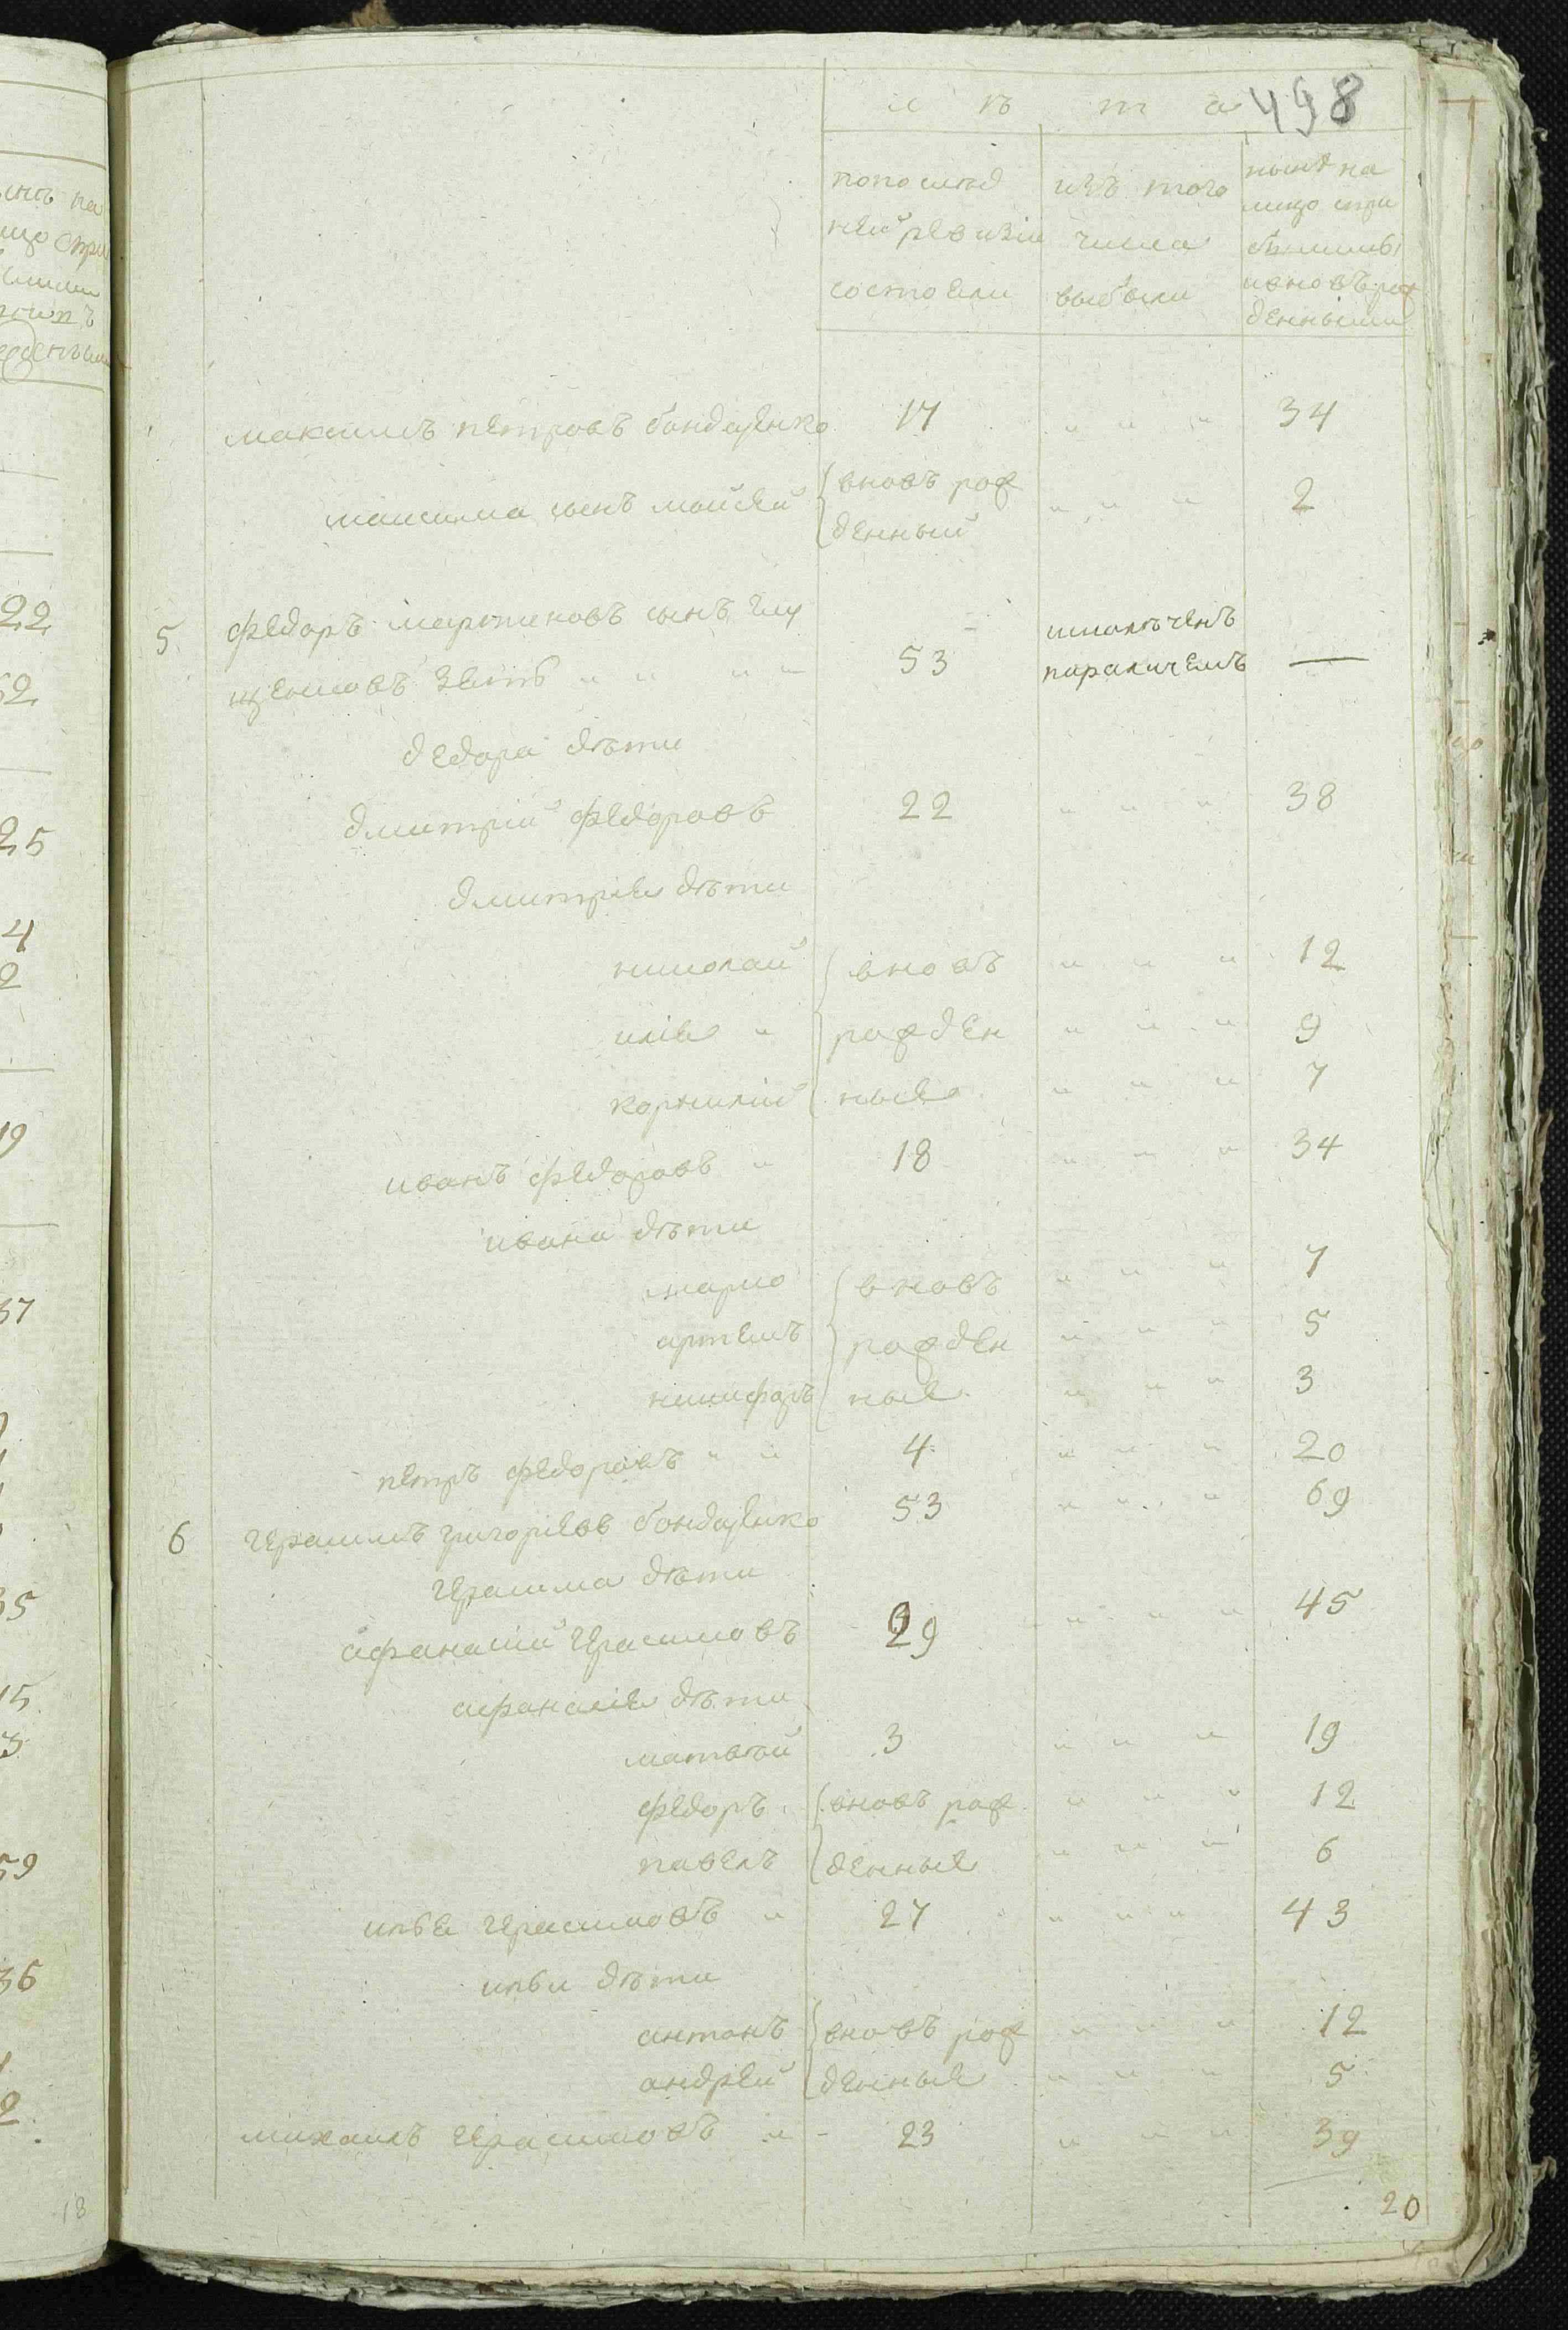 498
лѣта
попослѣд
ней ревизіи
состояли
изъ того
числа
выбыли
нынѣ на
лицо спри
былыми
ивновь рож
денными
максимъ петровъ бондаренко 17 " " " 34
максима сынъ мойсей вновь рож
денный " " " 2
5 федоръ мартиновъ сынъ
зять " " " " 53 параличемъ —
федора дѣти
дмитрий федоровъ 22 " " " 38
дмитрия дѣти
николай вновъ " " " 12
илія " рожден " " " 9
корнилий ные " " " 7
иванъ федоровъ " 18 " " " 34
ивана дѣти
марко вновъ " " " 7
артемъ рожден " " " 5
никифоръ ные " " " 3
петръ федоровъ " " 4 " " " 20
6 герасимъ григориевъ бондаренко 53 " " " 69
герасима дѣти
афанасий герасимовъ 29 " " " 45
афанасія дѣти
матвѣй 3 " " " 19
федоръ вновъ рож " " " 12
павелъ денные " " " 6
илья герасимовъ " 27 " " " 43
ильи дѣти
антонъ вновъ рож " " " 12
андрей денные " " " 5
михаилъ герасимовъ " 23 " " " 39
20